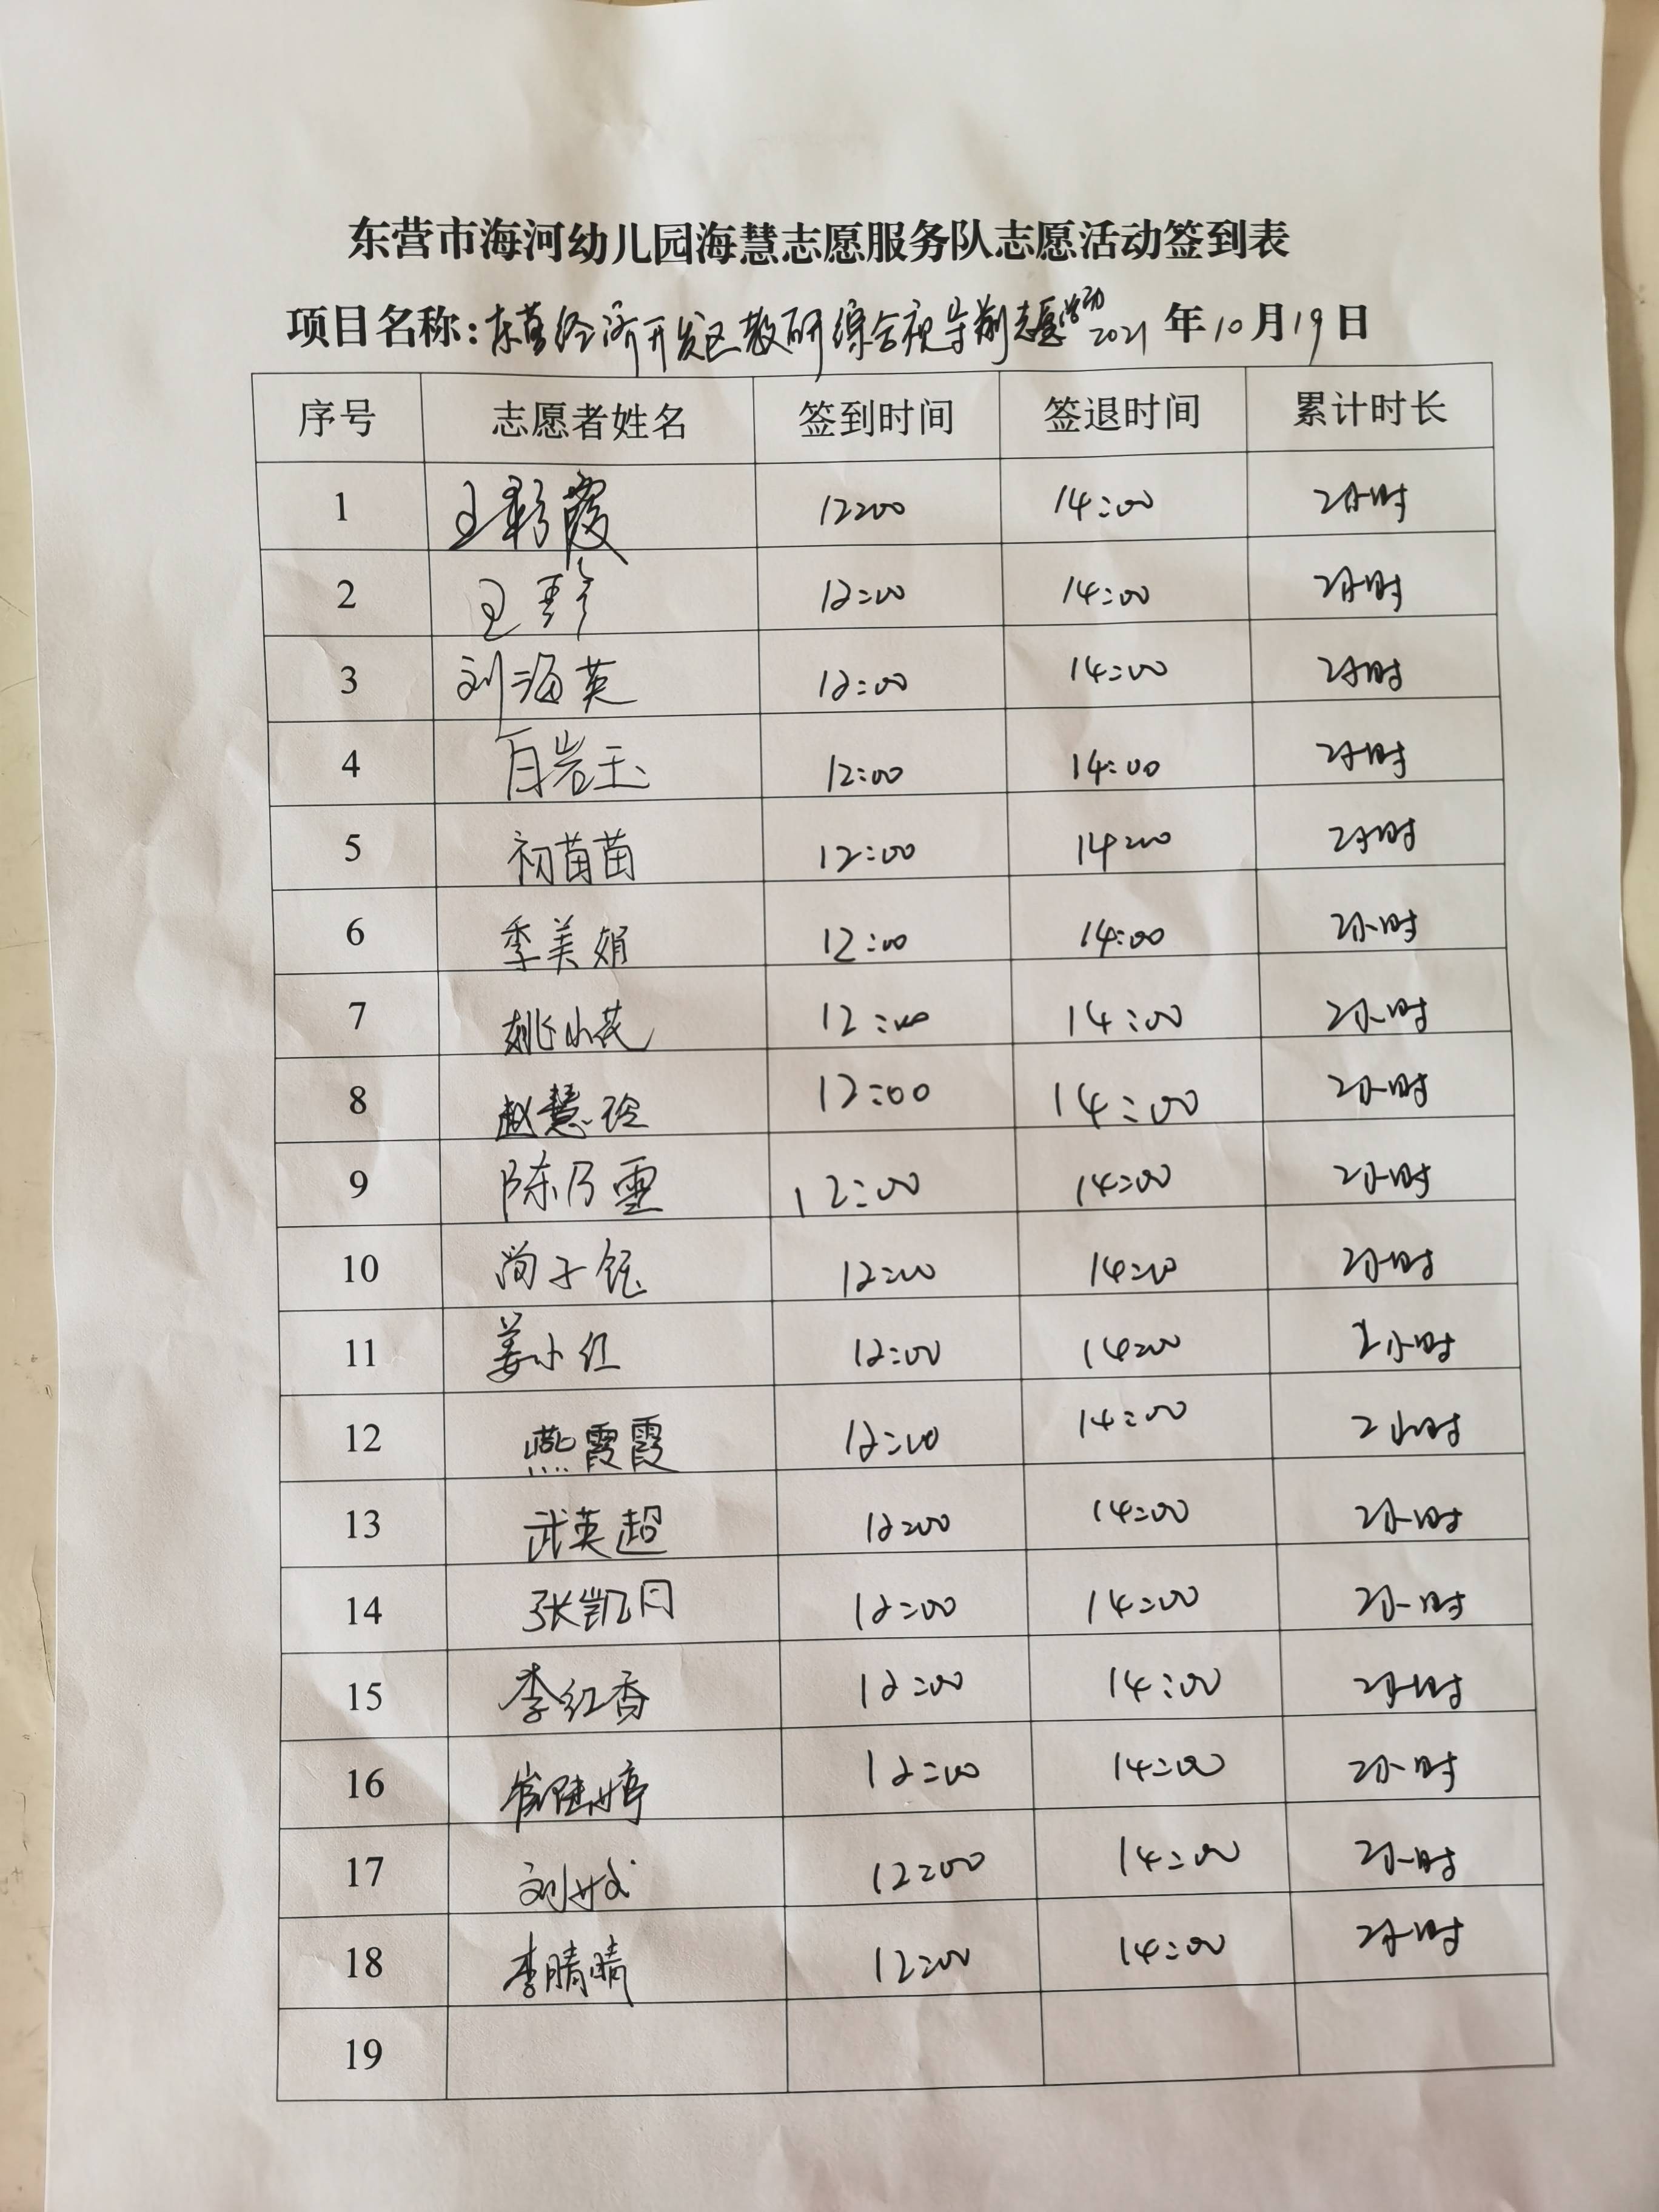 东营市海河幼儿园海慧志愿服务队志愿活动签到表
项目名称：东营经济开发区教研综合视导前志愿活动 2021年10月19日
序号 志愿者姓名 签到时间 签退时间 累计时长
1 王彩霞 12:00 14:00 2小时
2 王 12:00 14:00 2小时
3 刘海英 12:00 14:00 2小时
4 白岩玉 12:00 14:00 2小时
5 初苗苗 12:00 14:00 2小时
6 季美娟 12:00 14:00 2小时
7 姚小花 12:00 14:00 2小时
8 赵慧玲 12:00 14:00 2小时
9 陈乃雪 12:00 14:00 2小时
10 尚子钰 12:00 14:00 2小时
11 姜小红 12:00 14:00 2小时
12 燕霞霞 12:00 14:00 2小时
13 武英超 12:00 14:00 2小时
14 张凯月 12:00 14:00 2小时
15 李红香 12:00 14:00 2小时
16 崔婷 12:00 14:00 2小时
17 刘 12:00 14:00 2小时
18 李晴晴 12:00 14:00 2小时
19